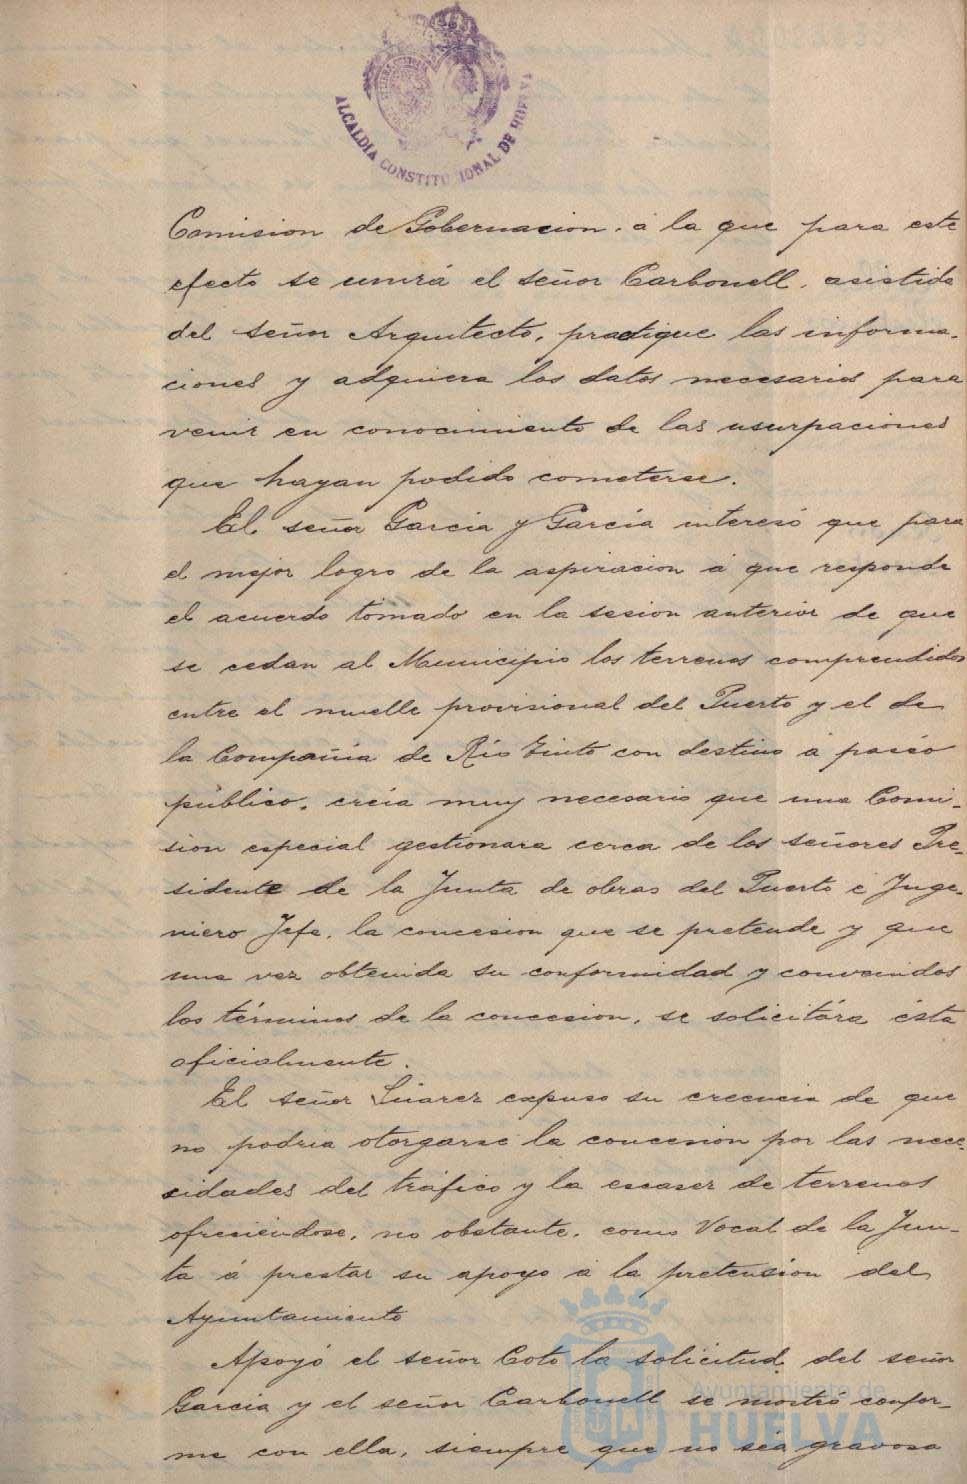 ALCALDIA CONSTITUCIONAL DE HUELVA
Comision de Gobernacion. á la que para este
efecto se unirá el señor Carbonell, asistido
del señor Arquitecto, practique las informa-
ciones y adquiera los datos necesarios para
venir en conocimiento de las usurpaciones
que hayan podido cometerse.
El señor Garcia y García interesó que para
el mejor logro de la aspiracion á que responde
el acuerdo tomado en la sesion anterior de que
se cedan al Municipio los terrenos comprendidos
entre el muelle provisional del Puerto y el de
la Compañia de Rio Tinto con destino á paseo
público, creia muy necesario que una Comi-
sion especial gestionara cerca de los señores Pre-
sidente de la Junta de obras del Puerto é Inge-
niero Jefe, la concesion que se pretende y que
una vez obtenida su conformidad y convenidos
los términos de la concesion, se solicitára ésta
oficialmente.
El señor Suarez expuso su creencia de que
no podria otorgarse la concesion por las nece-
sidades del tráfico y la escasez de terrenos
ofreciéndose, no obstante, como Vocal de la Jun-
ta á prestar su apoyo á la pretension del
Ayuntamiento
Apoyó el señor Coto la solicitud del señor
Garcia y el señor Carbonell se mostró confor-
me con ella, siempre que no sea gravosa
Ayuntamiento de
HUELVA